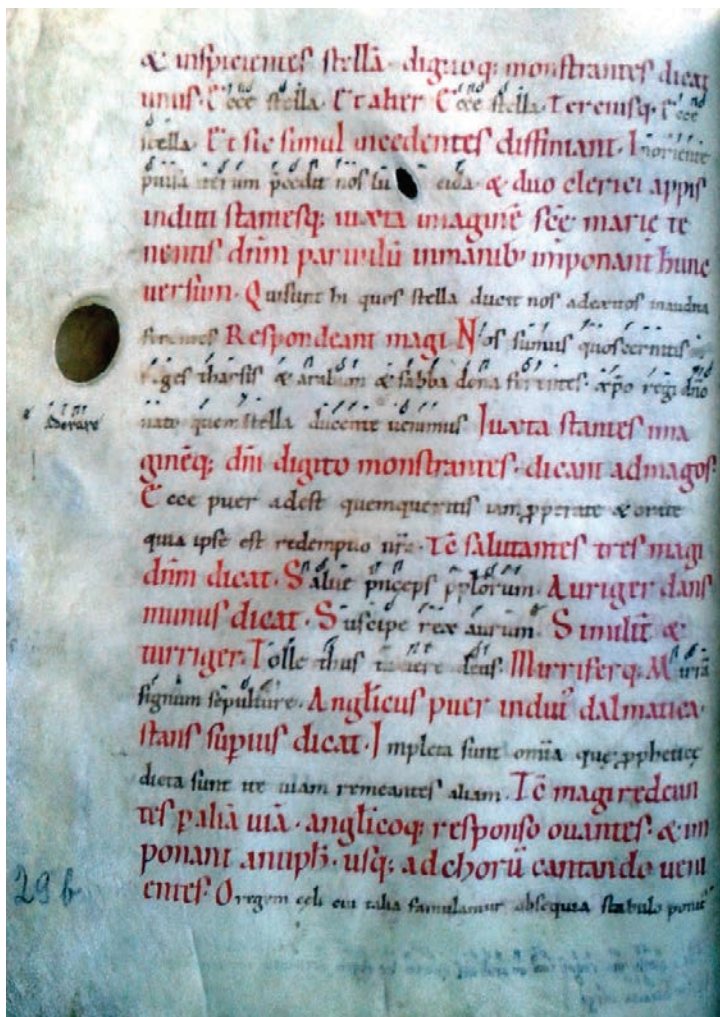 & inspicientes stellā. digitoq; monstrantes dicat
unus. Ecce stella. Et alter Ecce stella. Terciusq. Ecce
stella. Et sic simul incedentes diffiniant. Inoriente
p̄uisa iterum p̄cedit nos lu cida. & duo clerici appis
induti stantesq; iuxta imaginē scē marie te
nentis dn̄m paruulū inmanib' inponant hunc
uersum. Quisunt hi quos stella ducit nos adeuntes inaudita
ferentes Respondeant magi Nos sumus quoscernitis
reges tharsis & arabum & sabba dona ferentes. xp̄o regi dn̄o
& adorare
nato quem stella ducente uenimus Iuxta stantes ima
ginēq; dn̄i digito monstrantes. dicant admagos.
Ecce puer adest quemqueritis iam p̱perate & orate
quia ipse est redemptio nr̄a. Tc̄ salutantes tres magi
dn̄m dicat. Salue princeps pp̄lorum. Auriger dans
munus dicat. Suscipe rex aurum. Similit' &
turriger. Tolle thus tu uere deus. Mirriferq. Mirrā
signum sepulture. Anglicus puer indut' dalmatica.
stans sup̄ius dicat. Impleta sunt om̄ia quę p̱phetice
dicta sunt ite uiam remeantes aliam. Tc̄ magi redeun
tes p̱ aliā uiā. anglicoq; responso ouantes. & im
ponant antiph. usq; adchorū cantando ueni
29 b
entes. O regem celi cui talia famulantur obsequia stabulo ponit'